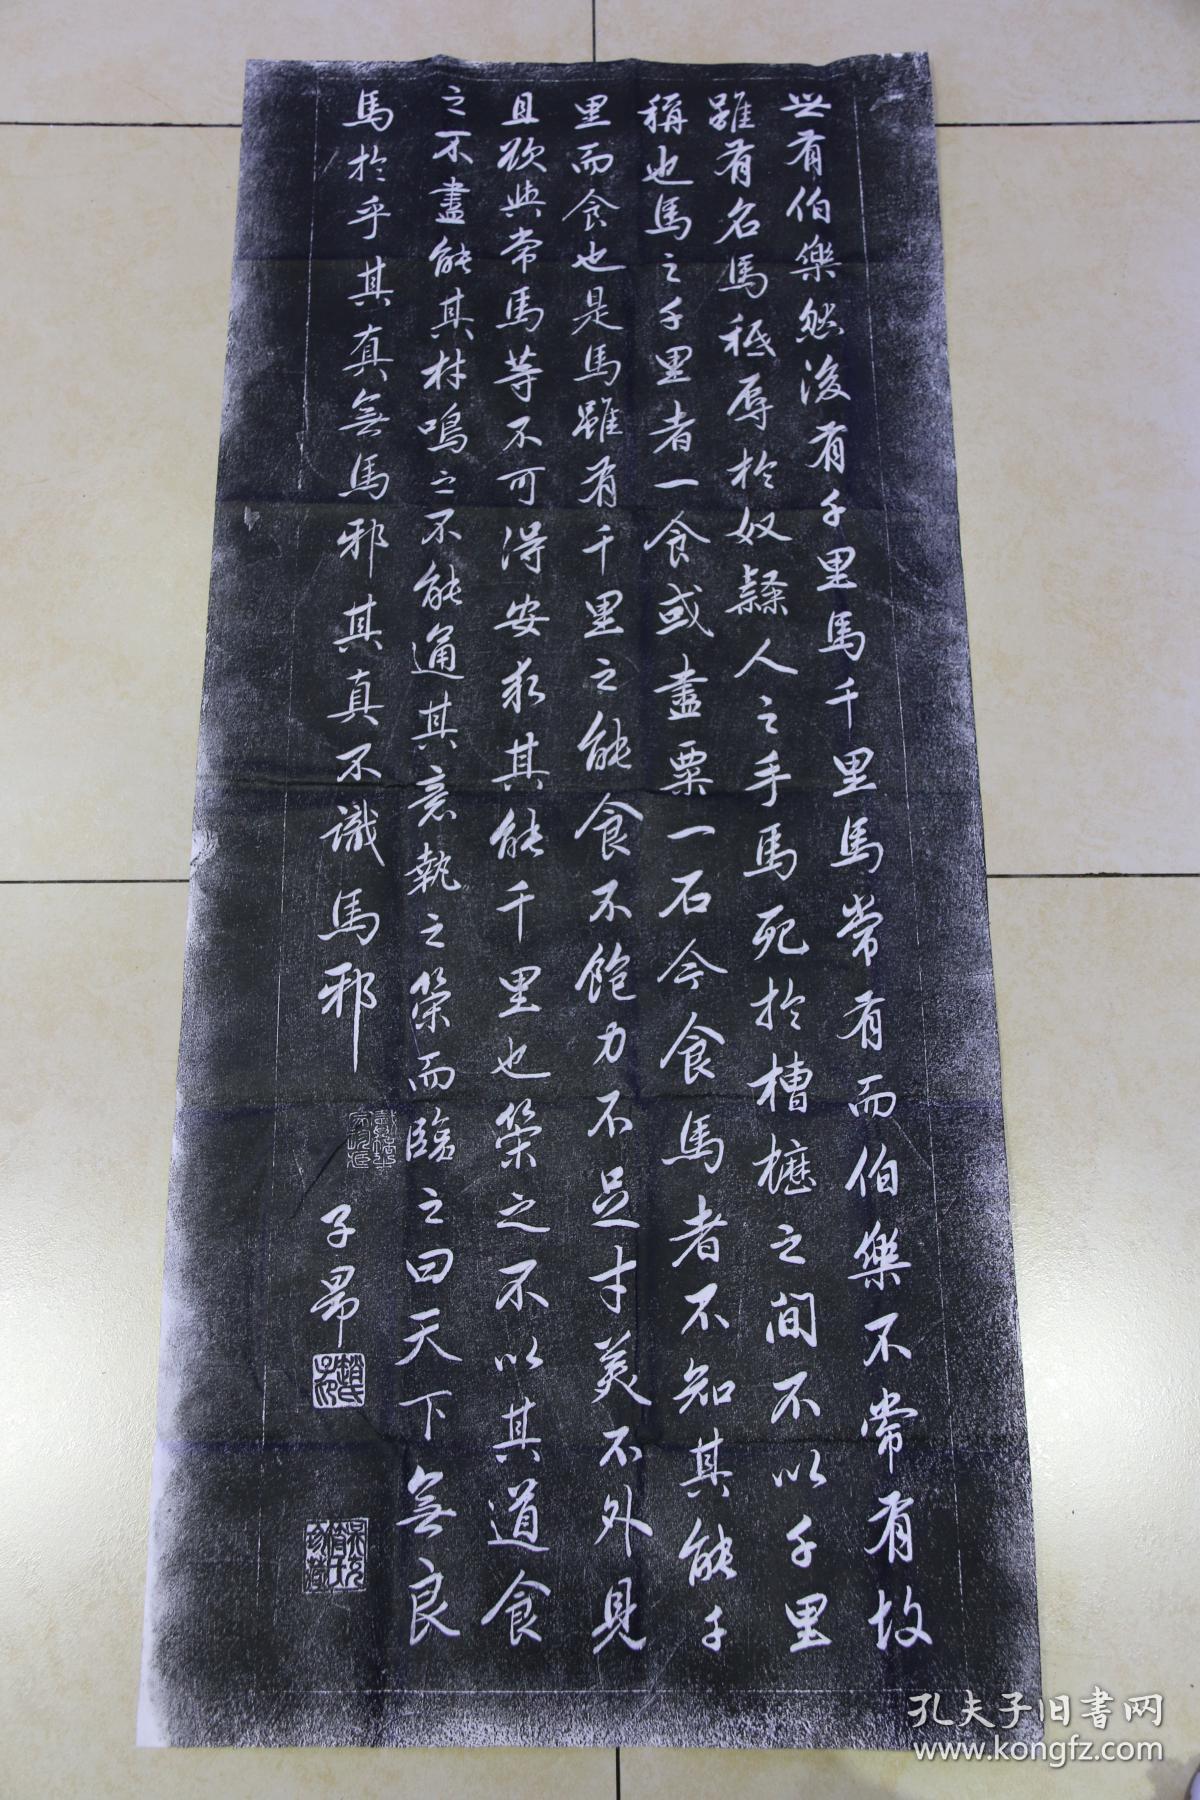 世有伯樂然後有千里馬千里馬常有而伯樂不常有故
雖有名馬秖辱於奴隸人之手馬死於槽櫪之间不以千里
稱也馬之千里者一食或盡粟一石今食馬者不知其能千
里而食也是馬雖有千里之能食不飽力不足才美不外見
且欲與常馬等不可得安求其能千里也策之不以其道食
之不盡能其材鳴之不能通其意執之策而臨之曰天下無良
馬於乎其真無馬邪其真不識馬邪
子昂
趙氏子昂
孔夫子旧书网
www.kongfz.com